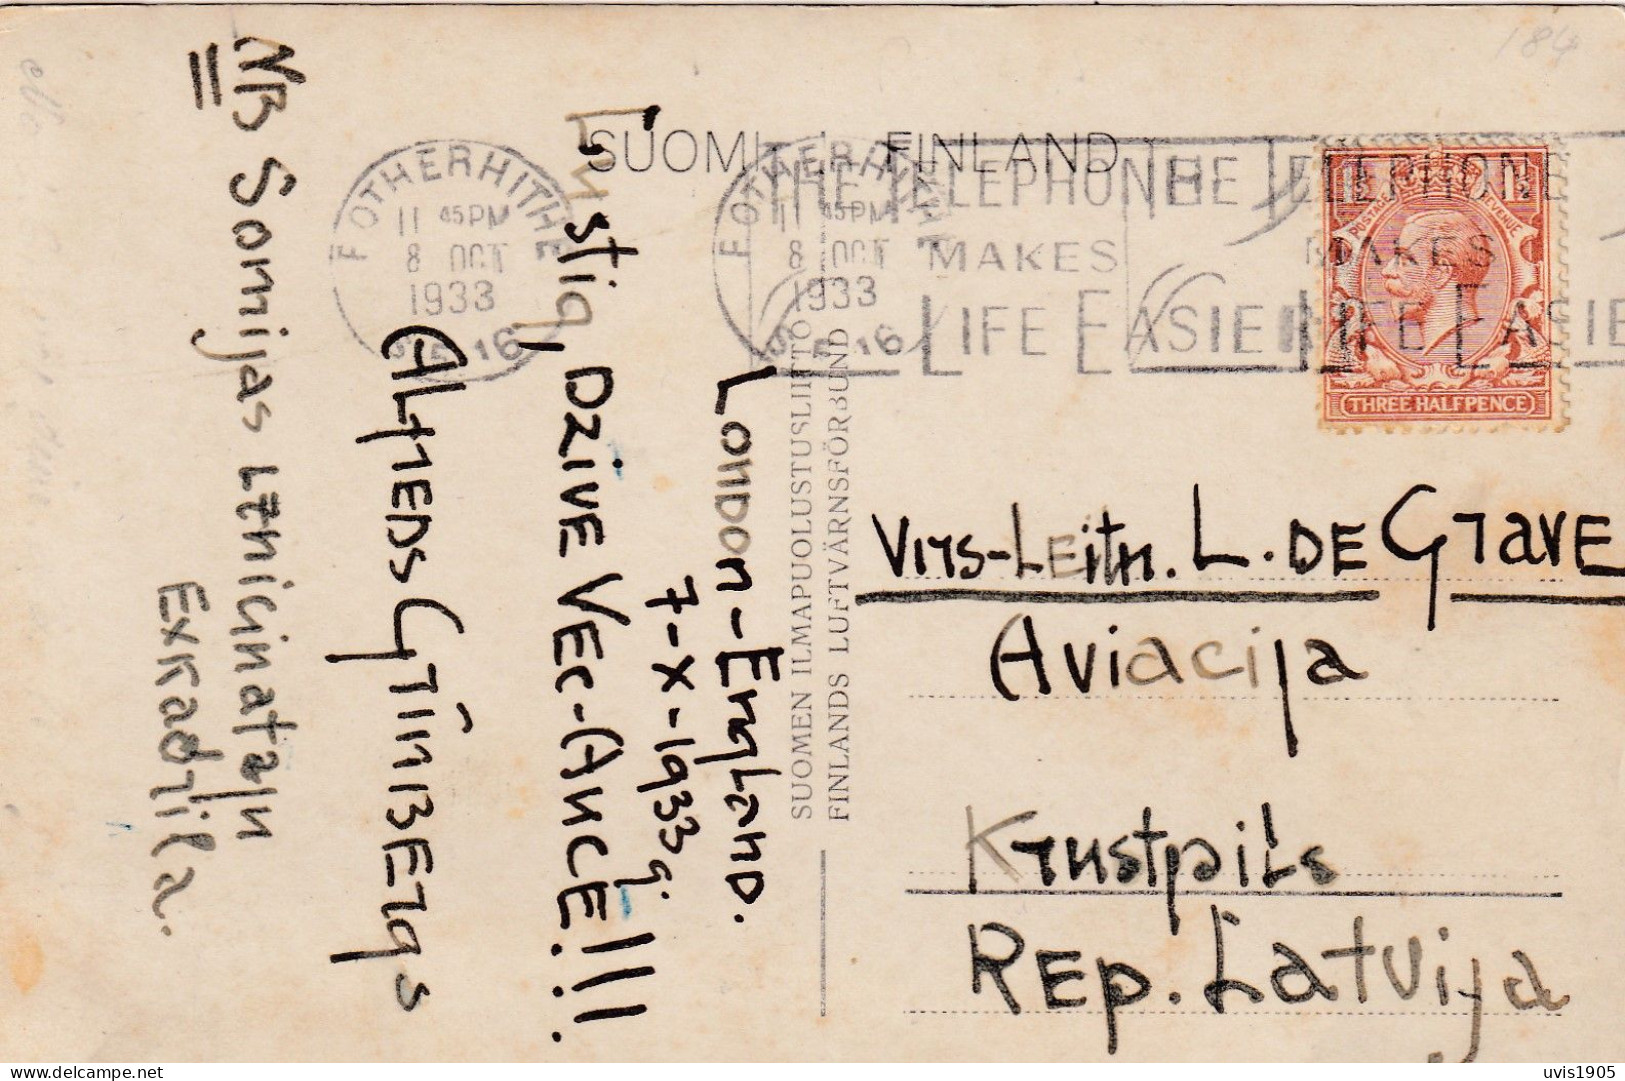 184
SUOMI FINLAND
ROTHERHITHE
11 45PM
8 OCT
1933
S.E.16
ROTHERHITHE
11 45PM
8 OCT
1933
S.E.16
THE TELEPHONE
MAKES
LIFE EASIER
THE TELEPHONE
MAKES
LIFE EASIE
POSTAGE REVENUE
THREE HALFPENCE
SUOMEN ILMAPUOLUSTUSLIITTO
FINLANDS LUFTVÄRNSFÖRBUND
London-England.
7-X-1933g.
Lustig, DZIVE VEC-ANCE!!!
Alfreds Grīnbergs
NB Somijas Iznicinatāju
Exkadrila.
Virs-Leitn. L. DE Grave
Aviacija
Krustpils
REP. Latvija
uvis1905